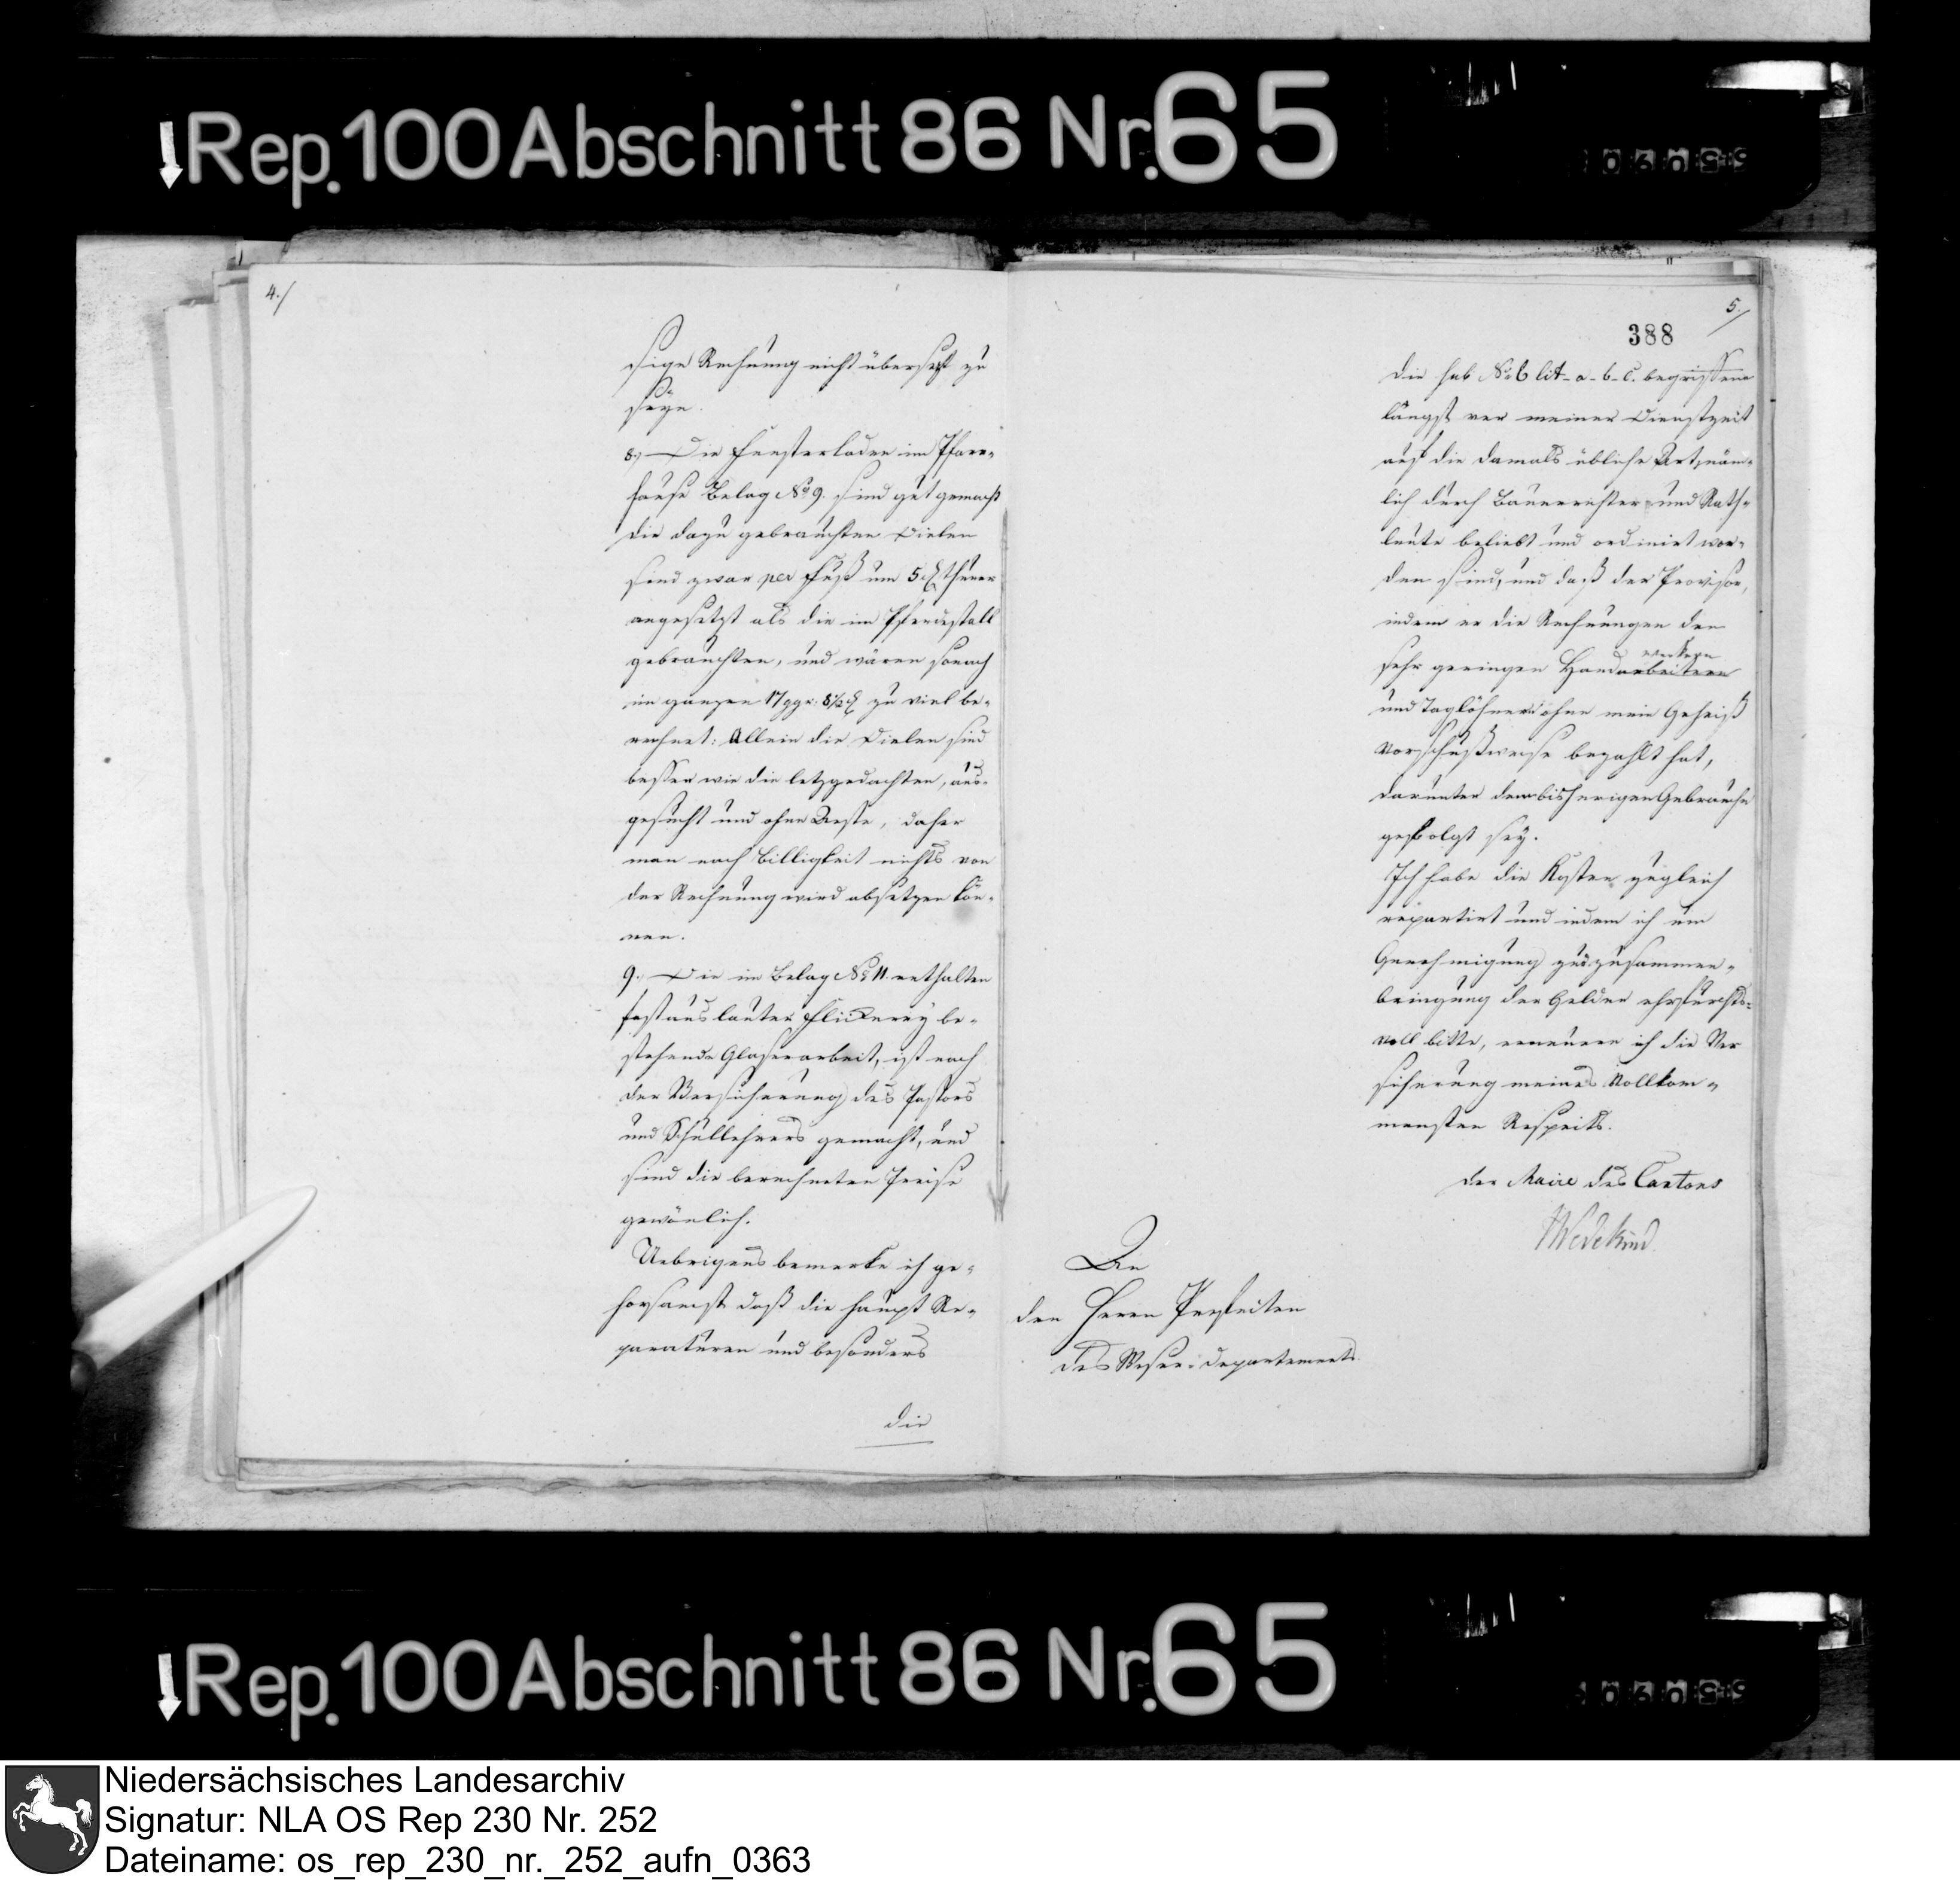 Rep. 100 Abschnitt 86 Nr. 65
4./
sige Rechnung nicht übersetzt zu
seyn.
8.) Die Fensterladen im Pfarr-
hause Belag No 9. sind gut gemacht
die dazu gebrauchten Dielen
sind zwar per Fuß um 5 ₰ theurer
angesetzt als die im Pferdestall
gebrauchten, und wären sonach
im ganzen 17 ggr. 8½ ₰ zu viel be-
rechnet: Allein die Dielen sind
besser wie die letzgedachten, aus-
gesucht und ohne Aeste, daher
man nach Billigkeit nichts von
der Rechnung wird absetzen kön-
nen.
9.) Die im Belag No 11 enthalten
fast aus lauter Flickerey be-
stehende Glaserarbeit, ist nach
der Versicherung des Pastors
und Schullehrers gemacht, und
sind die berechneten Preise
gewönlich.
Uebrigens bemerke ich ge-
horsamst daß die haupt Re-
paraturen und besonders
die
5./
388
die sub No 6 lit. a. b. c. begriffene
längst vor meiner Dienstzeit
auf die damals übliche Art, näm-
lich durch Bauerrichter und Rath-
leute beliebt und ordinirt wor-
den sind, und daß der Provisor,
indem er die Rechnungen den
werkern
sehr geringen Handarbeitern
und Taglöhner ohne mein Geheiß
Vorschußweise bezahlt hat,
darunter dem bisherigen Gebrauche
gefolgt sey.
Ich habe die Kosten zugleich
repartirt und indem ich um
Genehmigung zur zusammen-
bringung der Gelder ehrfurchts-
voll bitte, erneuere ich die Ver
sicherung meines Vollkom-
mensten Respects.
Der Maire des Cantons
Wedekind
An
den Herrn Prefecten
des Weser-Departements.
Rep. 100 Abschnitt 86 Nr. 65
Niedersächsisches Landesarchiv
Signatur: NLA OS Rep 230 Nr. 252
Dateiname: os_rep_230_nr._252_aufn_0363